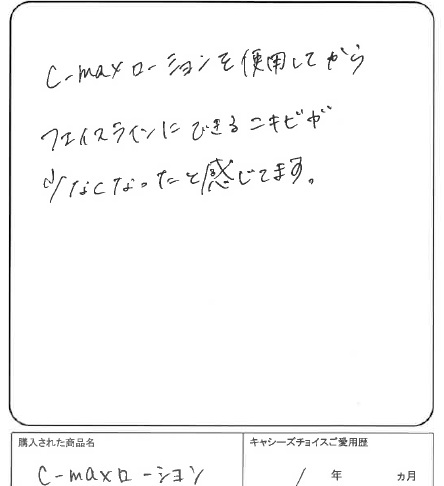 C-maxローションを使用してから
フェイスラインにできるニキビが
少なくなったと感じてます。
購入された商品名
キャシーズチョイスご愛用歴
C-maxローション
/ 年 ヵ月